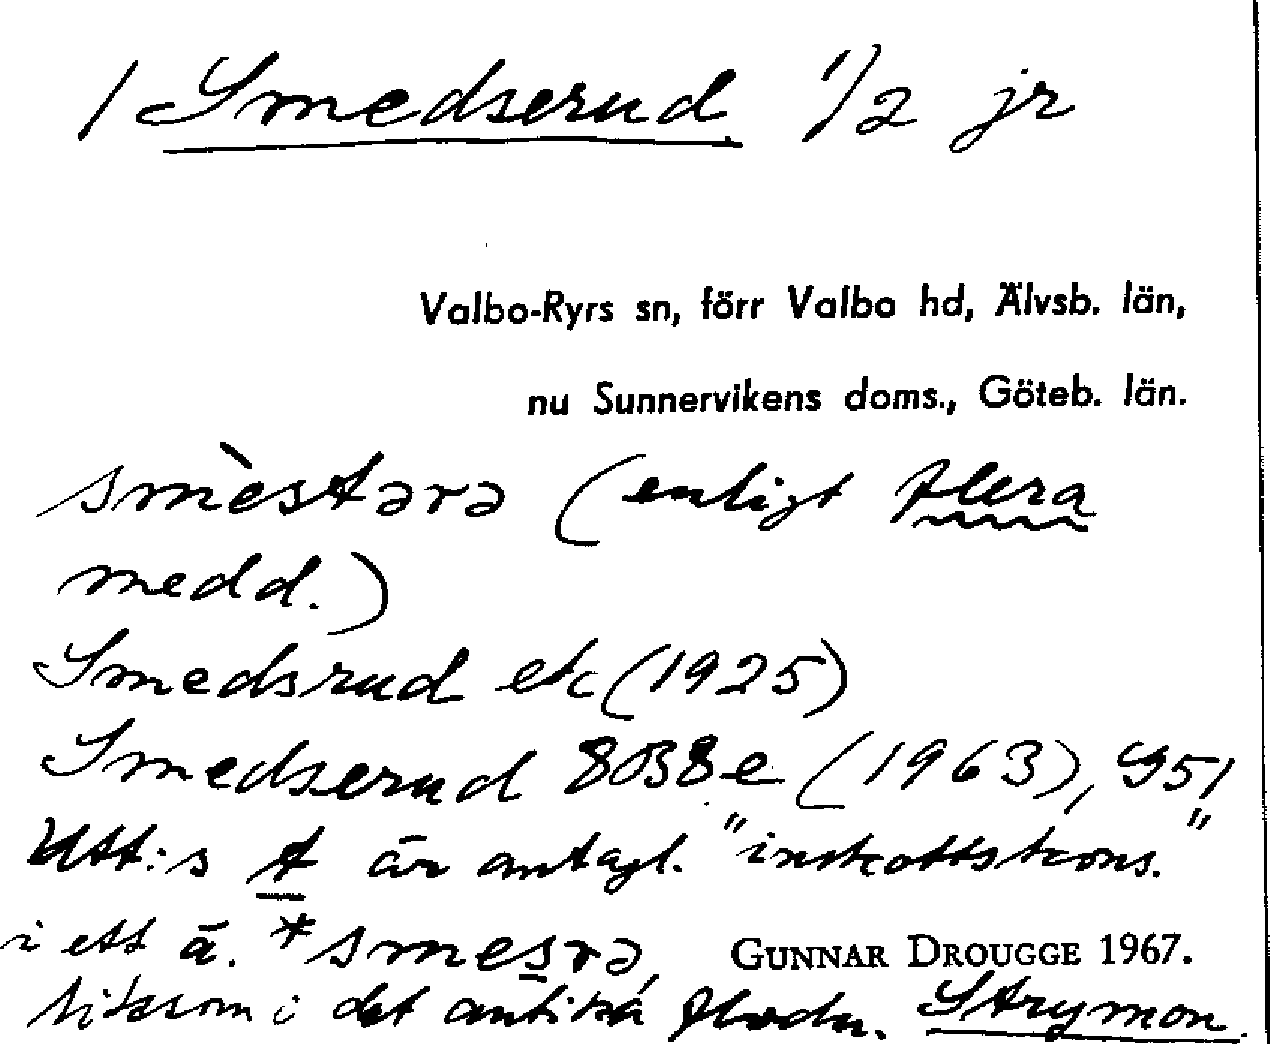 / Smedserud 1/2 jr
Valbo-Ryrs sn, förr Valbo hd, Älvsb. län,
nu Sunnervikens doms., Göteb. län.
smèstərə (enligt flera
medd.)
Smedsrud etc (1925)
Smedserud 8B8e (1963), Y51
Utt:s t är antagl. "inskottskons."
i ett ä. *smesrə,
GUNNAR DROUGGE 1967.
liksom i det antika flodn. Strymon.